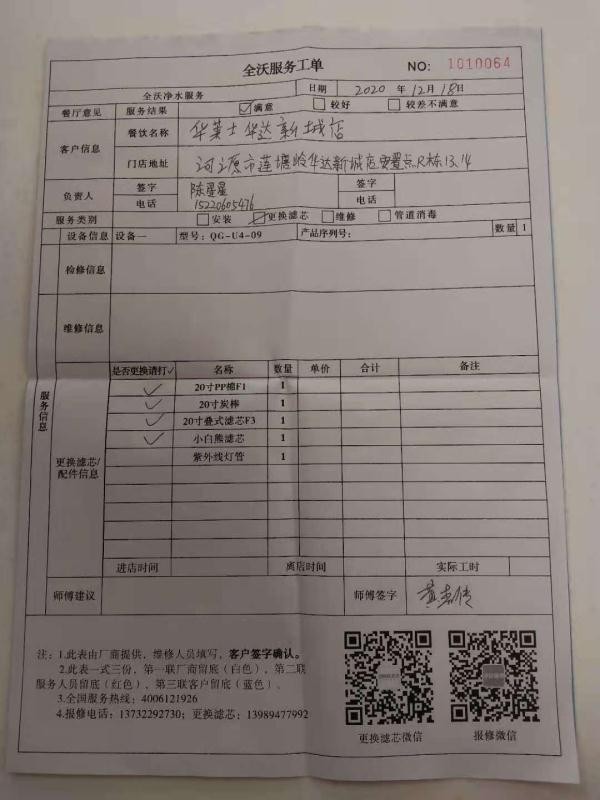 全沃服务工单 NO: 1010064
全沃净水服务 日期 2020 年 12 月 18 日
餐厅意见 服务结果 ☑满意 □较好 □较差不满意
客户信息 餐饮名称 华莱士华达新城店
门店地址 河源市莲塘岭华达新城店安置点R栋13.14
负责人 签字 陈星星 签字
电话 15220605476 电话
服务类别 □安装 ☑更换滤芯 □维修 □管道消毒
设备信息 设备一 型号:QG-U4-09 产品序列号: 数量 1
检修信息
维修信息
服务信息
是否更换请打✓ 名称 数量 单价 合计 备注
✓ 20寸PP棉F1 1
✓ 20寸炭棒 1
✓ 20寸叠式滤芯F3 1
✓ 小白熊滤芯 1
紫外线灯管 1
更换滤芯/
配件信息
进店时间 离店时间 实际工时
师傅建议 师傅签字
注:1.此表由厂商提供,维修人员填写,客户签字确认。
2.此表一式三份,第一联厂商留底(白色),第二联
服务人员留底(红色),第三联客户留底(蓝色)。
3.全国服务热线:4006121926
4.报修电话:13732292730;更换滤芯:13989477992
更换滤芯微信 报修微信